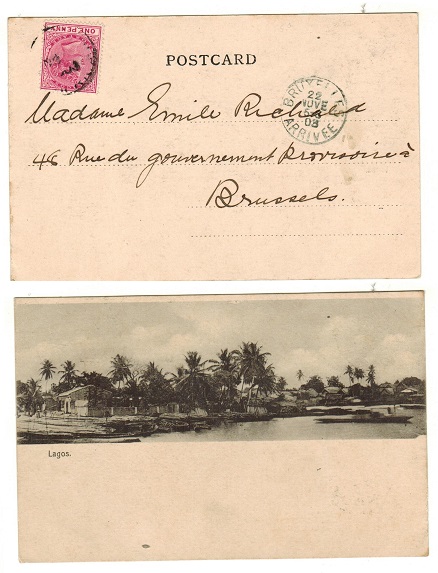 ONE PENNY
POSTCARD
BRUXELLES
22
NOVE
03
ARRIVEE
Madame Emile Richard
48 Rue du gouvernement Provisoire à
Brussels.
Lagos.